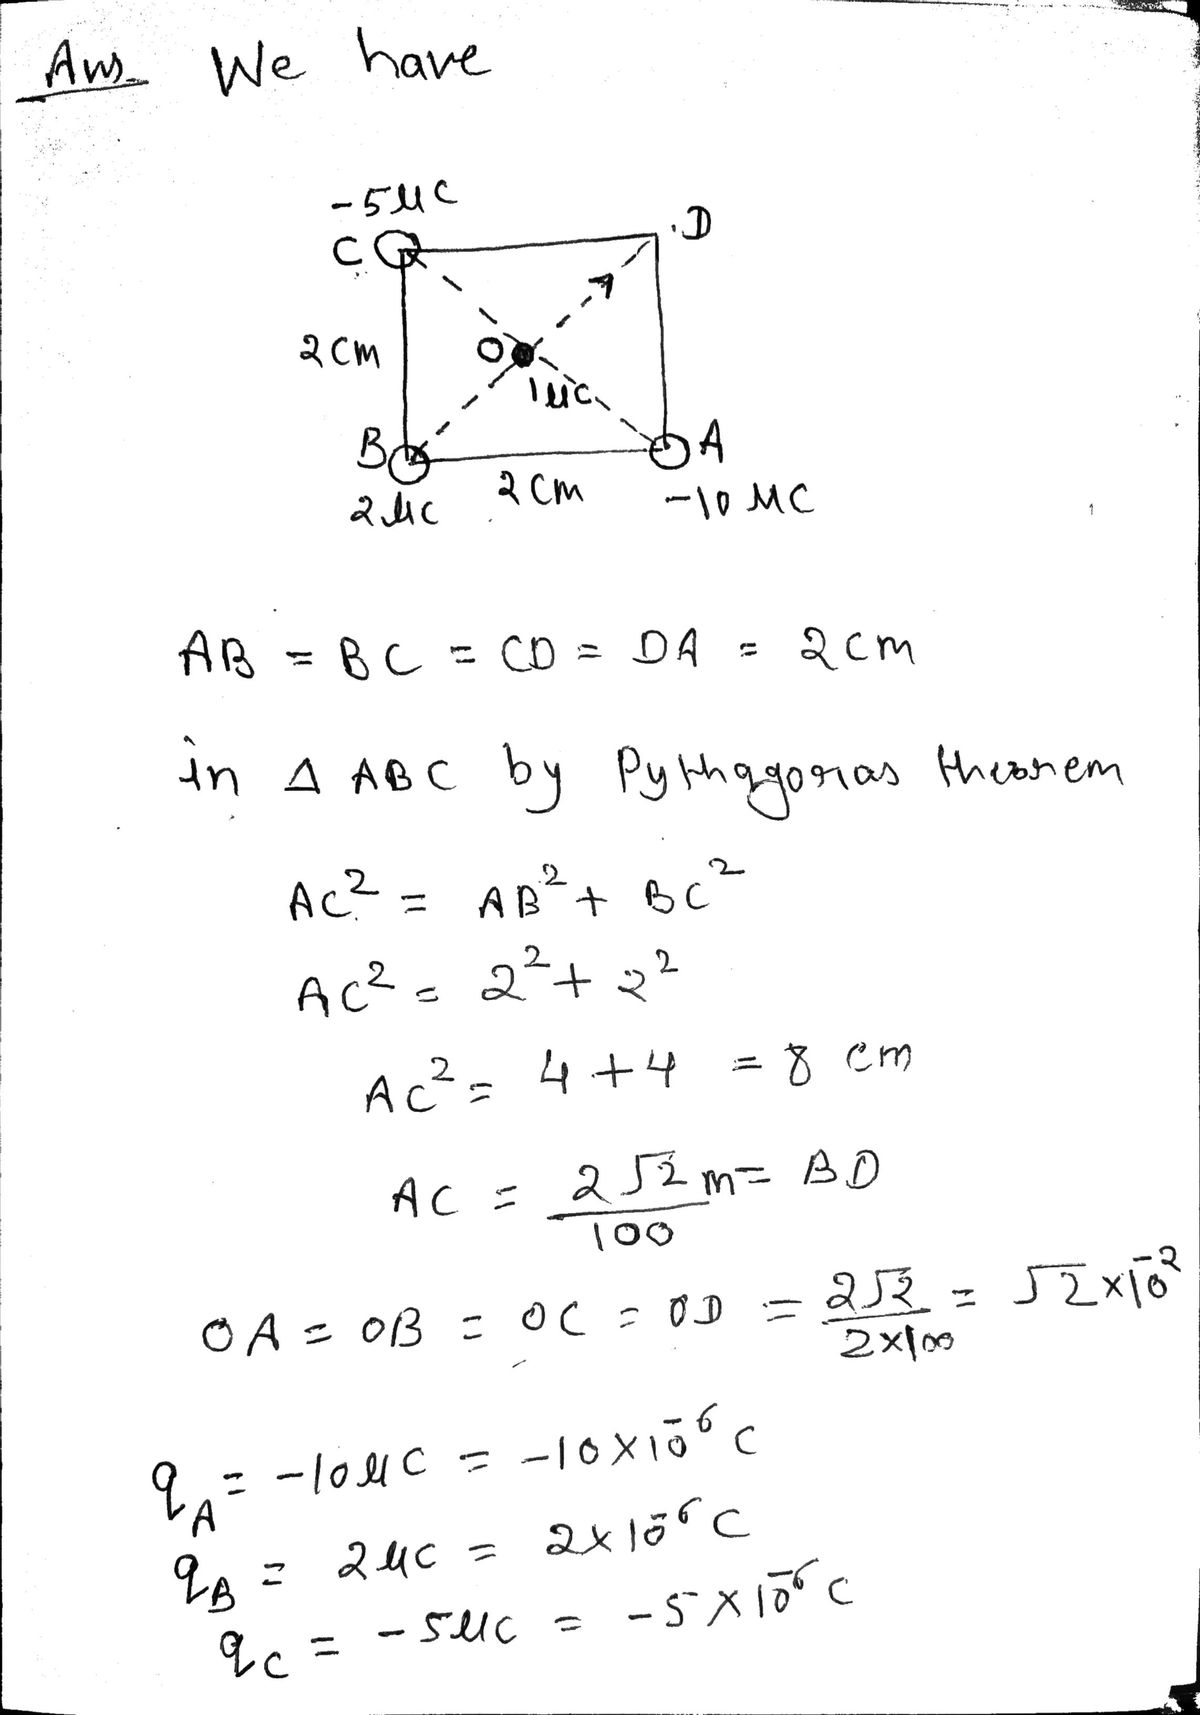 Ans. We have
-5μC
C
.D
2cm
O
1μC
B
A
2μC
2cm
-10 MC
AB = BC = CD = DA = 2cm
in Δ ABC by Pythagoras theorem
AC² = AB² + BC²
AC² = 2² + 2²
AC² = 4 + 4 = 8 cm
AC = 2√2/100 m = BD
OA = OB = OC = OD = 2√2/2×100 = √2 × 10⁻²
q_A = -10μC = -10 × 10⁻⁶ C
q_B = 2μC = 2 × 10⁻⁶ C
q_C = -5μC = -5 × 10⁻⁶ C